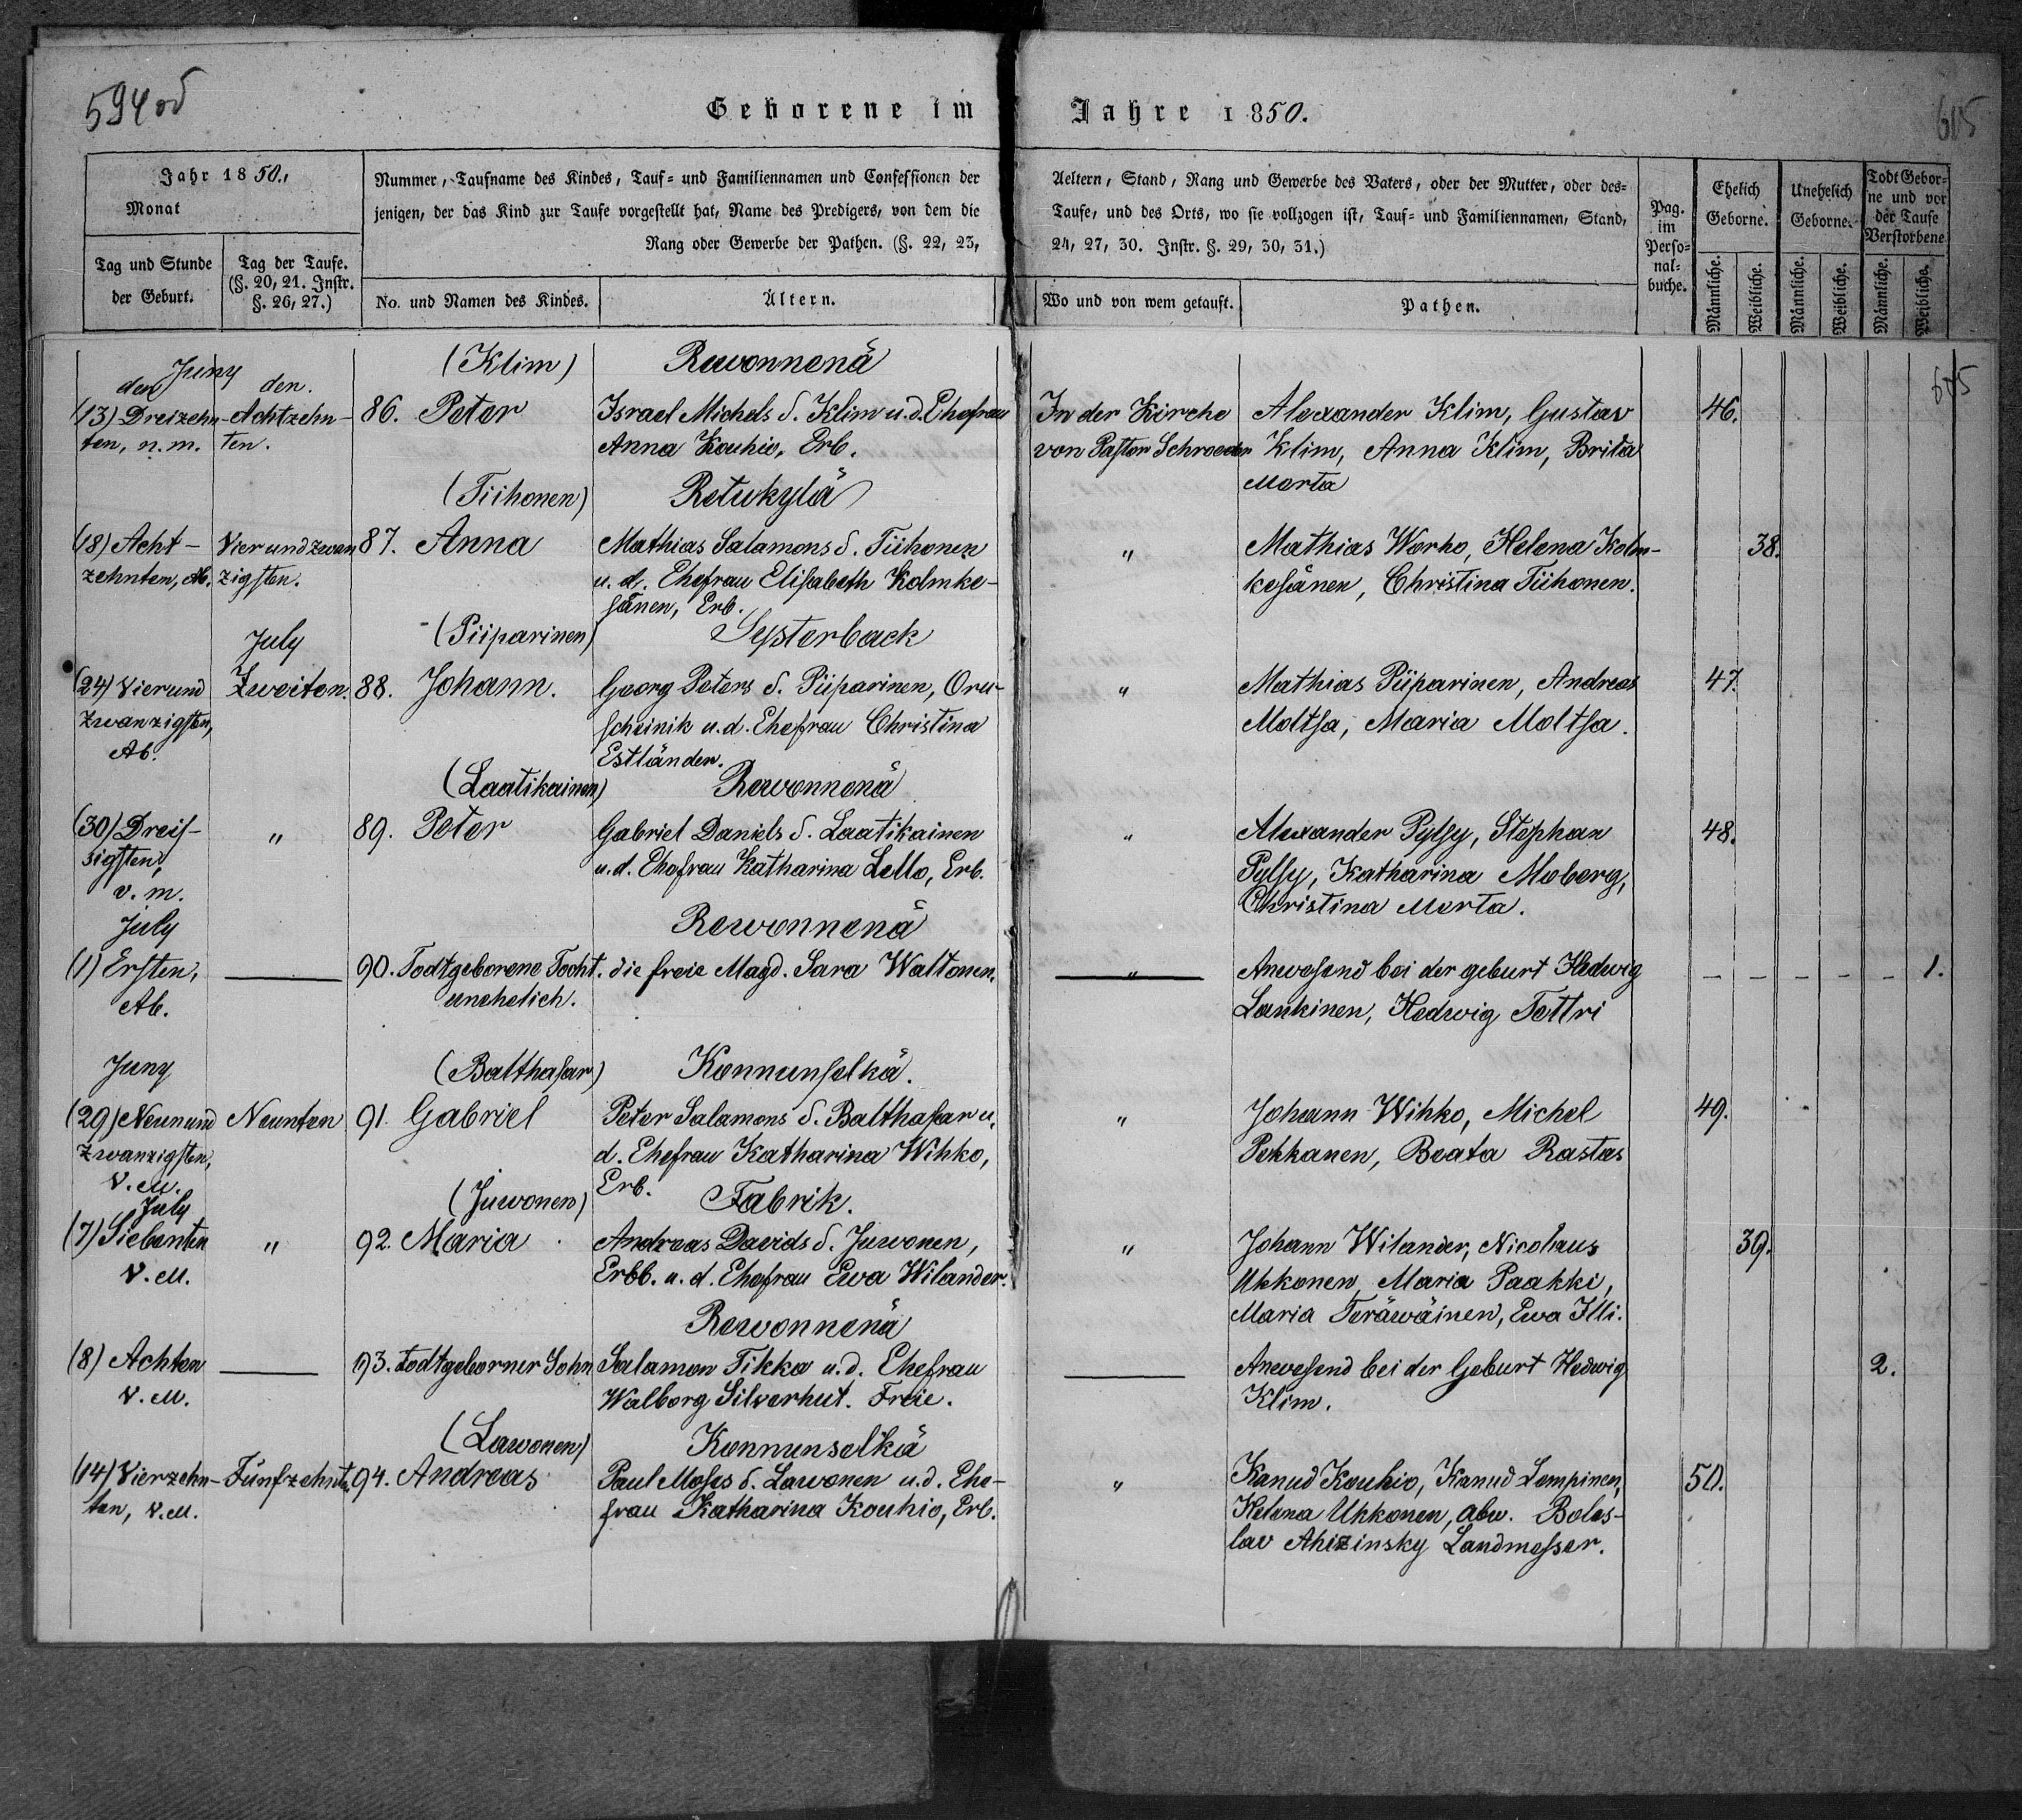 594
Geborene im Jahre 1850.
615
Jahr 1850.,
Monat
Tag und Stunde der Geburt.
Tag der Taufe. (§. 20, 21. Instr. §. 26, 27.)
Nummer, Taufname des Kindes, Tauf- und Familiennamen und Confessionen der
jenigen, der das Kind zur Taufe vorgestellt hat, Name des Predigers, von dem die
Rang oder Gewerbe der Pathen. (§. 22, 23,
No. und Namen des Kindes.
Ältern.
Aeltern, Stand, Rang und Gewerbe des Vaters, oder der Mutter, oder des-
Taufe, und des Orts, wo sie vollzogen ist, Tauf- und Familiennamen, Stand,
24, 27, 30. Instr. §. 29, 30, 31.)
Wo und von wem getauft.
Pathen.
Pag. im Perso-nal-buche.
Ehelich Geborne.
Unehelich Geborne.
Todt Gebor-ne und vor der Taufe Verstorbene
Männliche. Weibliche. Männliche. Weibliche. Männliche. Weibliche.
Juny (Klim) Rewonnenä
615
den den.
(13) Dreizehn- Achtzehn- 86. Peter Israel Michels S. Klim u.d. Ehefrau In der Kirche Alexander Klim, Gustav 46.
ten, n.m. ten. Anna Kouhio, Erb. von Pastor Schroeder Klim, Anna Klim, Brita
Morta
(Tiihonen) Retukylä
(18) Acht- Vierundzwan 87. Anna Mathias Salamons S. Tiihonen " Mathias Worho, Helena Kolm- 38.
zehnten, Ab. zigsten. u. d. Ehefrau Elisabeth Kolmke- kesänen, Christina Tiihonen.
sänen, Erb.
July (Piiparinen) Systerback
(24) Vierund Zweiten. 88. Johann. Georg Peters S. Piiparinen, Oru- " Mathias Piiparinen, Andreas 47.
zwanzigsten, scheinik u.d. Ehefrau Christina Moltsa, Maria Moltsa.
Ab. Estländer.
(Laatikainen) Rewonnenä
(30) Dreis- " 89. Peter Gabriel Daniels S. Laatikainen " Alexander Pylsy, Stephan 48.
sigsten, u.d. Ehefrau Katharina Lello, Erb. Pylsy, Katharina Moberg,
v. m. Christina Morta.
July Rewonnenä
(1) Ersten, 90. Todtgeborene Tocht. die freie Magd. Sara Waltonen. " Anwesend bei der geburt Hedwig 1.
Ab. unehelich. Lankinen, Hedwig Tettri
Juny (Balthasar) Konnunselkä.
(29) Neunund Neunten 91. Gabriel Peter Salamons S. Balthasar u. " Johann Wihko, Michel 49.
zwanzigsten, d. Ehefrau Katharina Wihko, Pekkanen, Beata Rastas
V. M. Erb.
July (Juwonen) Fabrik.
(7) Siebenten " 92. Maria Andreas Davids S. Juwonen, " Johann Wilander, Nicolaus 39.
V. M. Erbb. u. d. Ehefrau Ewa Wilander. Ukkonen, Maria Paakki,
Rewonnenä Maria Teräwäinen, Ewa Illi.
(8) Achten 93. Todtgeborner Sohn Salamon Tikka u.d. Ehefrau Anwesend bei der Geburt Hedwig 2.
V. M. Walborg Silverhut. Freie. Klim.
(Lawonen) Konnunselkä
(14) Vierzehn- Fünfzehnten 94. Andreas Paul Moses S. Lawonen u.d. Ehe- " Kanud Kouhio, Kanud Lempinen, 50.
ten, V.M. frau Katharina Kouhio, Erb. Helena Ukkonen, abw. Boles-
lav Ahizinsky Landmesser.